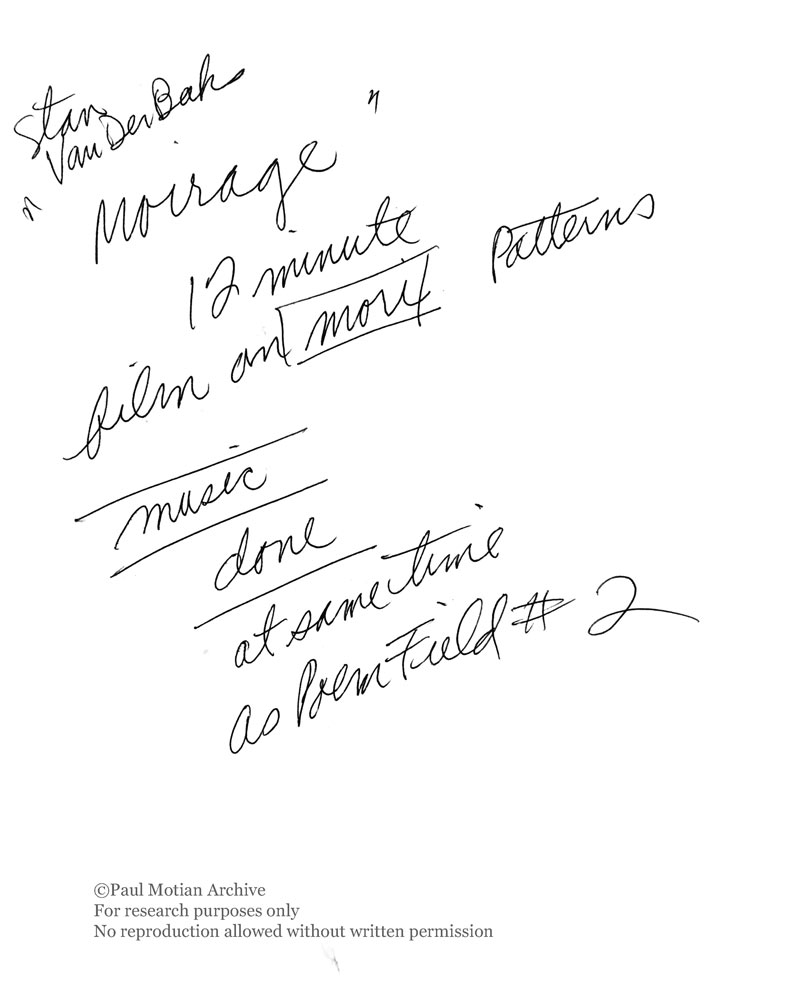 Stan
VanDerBek
"Moirage"
12 minute
film on morix Patterns
music
done
at same time
as Poem Field # 2
©Paul Motian Archive
For research purposes only
No reproduction allowed without written permission